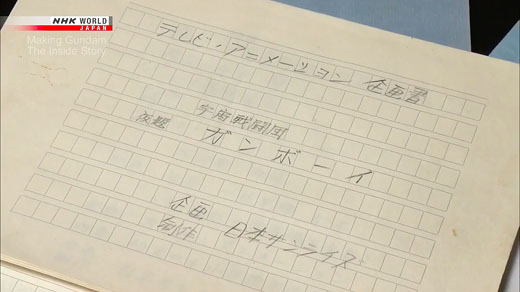 NHK WORLD
JAPAN
Making Gundam
The Inside Story
テレビ・アニメーション 企画書
宇宙戦闘団
仮題 ガンボーイ
企画
制作 日本サンライズ